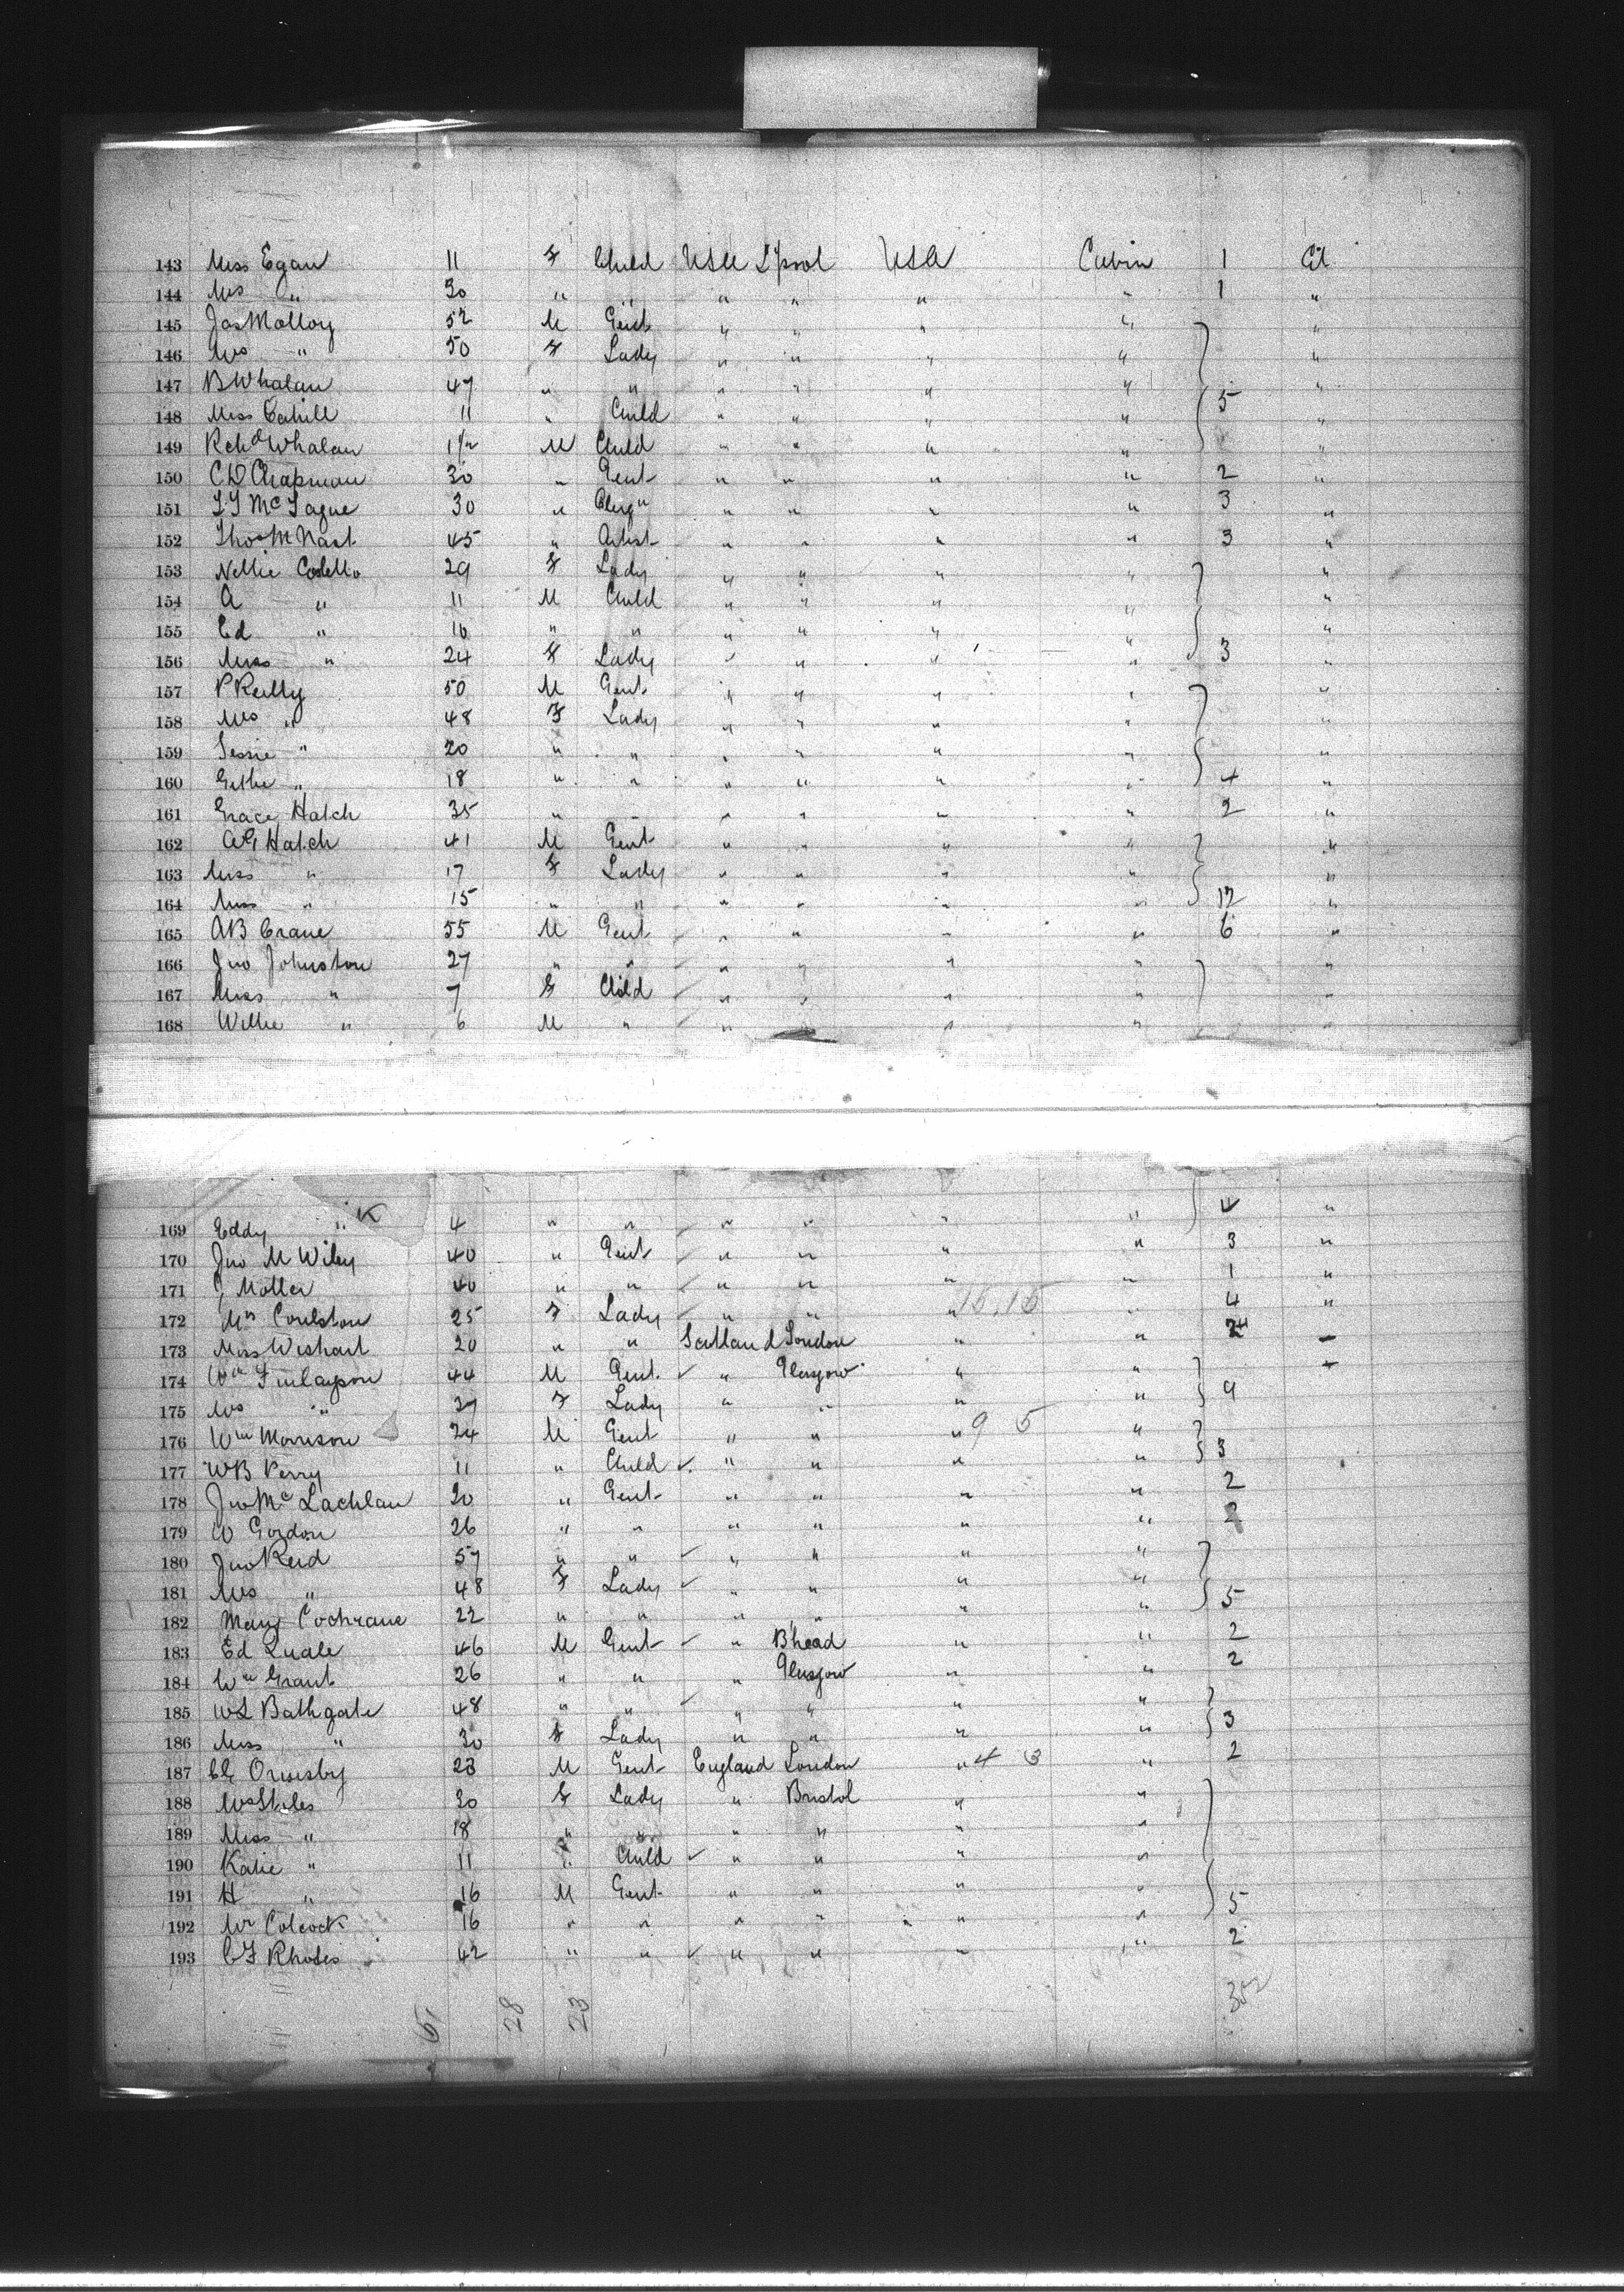 143 Miss Egan 11 F Child USA L'pool USA Cabin 1 Cit
144 Mrs " 30 " " " " " " 1 "
145 Jas Molloy 52 M Gent " " " " "
146 Mrs " 50 F Lady " " " " "
147 B Whalan 47 " " " " " " 5 "
148 Miss Cahill 11 " Child " " " " "
149 Richd Whalan 1½ M Child " " " " "
150 CD Chapman 30 " Gent " " " " 2 "
151 McTague 30 " Clergn " " " " 3 "
152 Thos M Nast 45 " Artist " " " " 3 "
153 Nellie Costello 29 F Lady " " " " "
154 A " 11 M Child " " " " "
155 Ed " 10 " " " " " " "
156 Miss " 24 F Lady " " " " 3 "
157 P Reilly 50 M Gent " " " " "
158 Mrs " 48 F Lady " " " " "
159 Jessie " 20 " " " " " " "
160 " 18 " " " " " " 4 "
161 Grace Hatch 35 " " " " " " 2 "
162 AG Hatch 41 M Gent " " " " "
163 Miss " 17 F Lady " " " " "
164 Miss " 15 " " " " " " 12 "
165 AB Crane 55 M Gent " " " " 6 "
166 Jno Johnston 27 " " " " " " "
167 Miss " 7 F Child " " " " "
168 Willie " 6 M " " " " " "
169 Eddy " K 4 " " " " " " 4 "
170 Jno M Wiley 40 " Gent " " " " 3 "
171 J Moller 40 " " " " " " 1 "
172 Mrs Coulston 25 F Lady " " " 15.15 " 4 "
173 Miss Wishart 20 " " Scotland London " " 2
174 Wm Finlayson 44 M Gent " Glasgow " "
175 Mrs " 27 F Lady " " " " 9
176 Wm Morrison 24 M Gent " " " 9 5 "
177 WB Perry 11 " Child " " " " 3
178 Jno McLachlan 20 " Gent " " " " 2
179 W Gordon 26 " " " " " " 2
180 Jno Reid 57 " " " " " "
181 Mrs " 48 F Lady " " " "
182 Mary Cochrane 22 " " " " " " 5
183 Ed Quale 46 M Gent " Bhead " " 2
184 Wm Grant 26 " " " Glasgow " " 2
185 WL Bathgate 48 " " " " " "
186 Miss " 30 F Lady " " " " 3
187 Ormsby 23 M Gent England London " 4 3 " 2
188 Mrs Stiles 30 F Lady " Bristol " "
189 Miss " 18 " " " " " "
190 Katie " 11 " Child " " " "
191 H " 16 M Gent " " " "
192 Mr Colcock 16 " " " " " " 5
193 CF Rhodes 42 " " " " " " 2
51 28 23 352